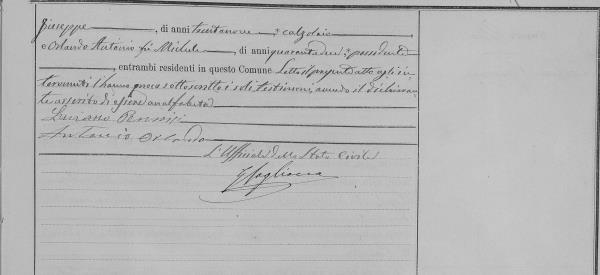 Giuseppe, di anni trentanove, calzolaio
e Orlando Antonio fu Michele, di anni quarantadue, possidente
, entrambi residenti in questo Comune Letto il presente atto agli in-
tervenuti l'hanno meco sottoscritto i soli testimoni, avendo il dichiaran-
te asserito di essere analfabeta
Luciano
Antonio Orlando
L'Ufficiale dello Stato Civile